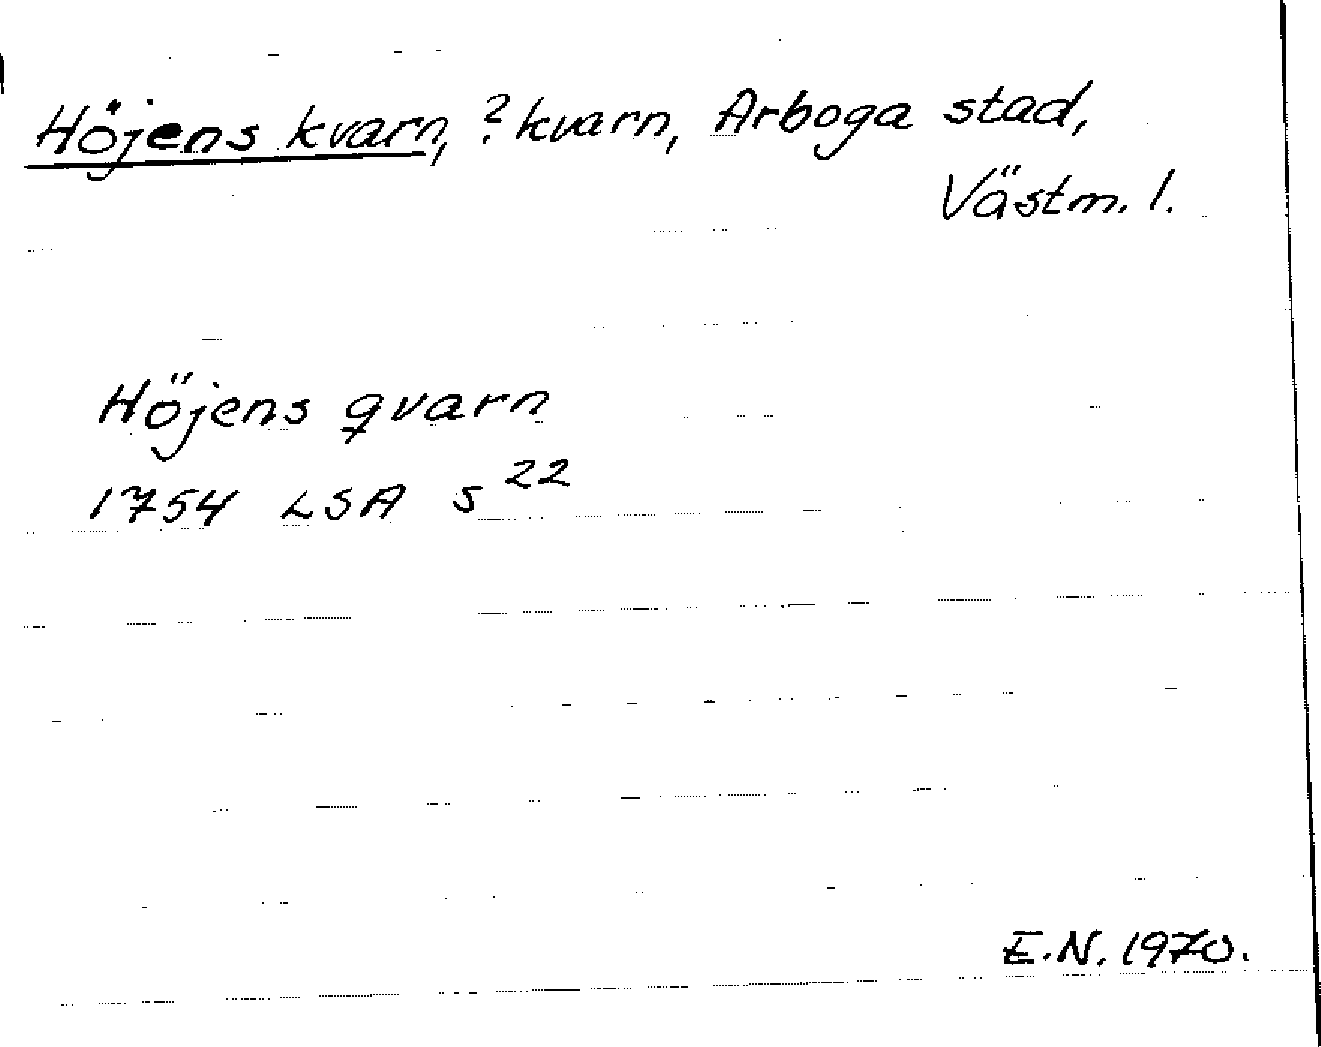 Höjens kvarn, ? kvarn, Arboga stad,
Västm. l.
Höjens qvarn
1754 LSA S 22
E.N. 1970.